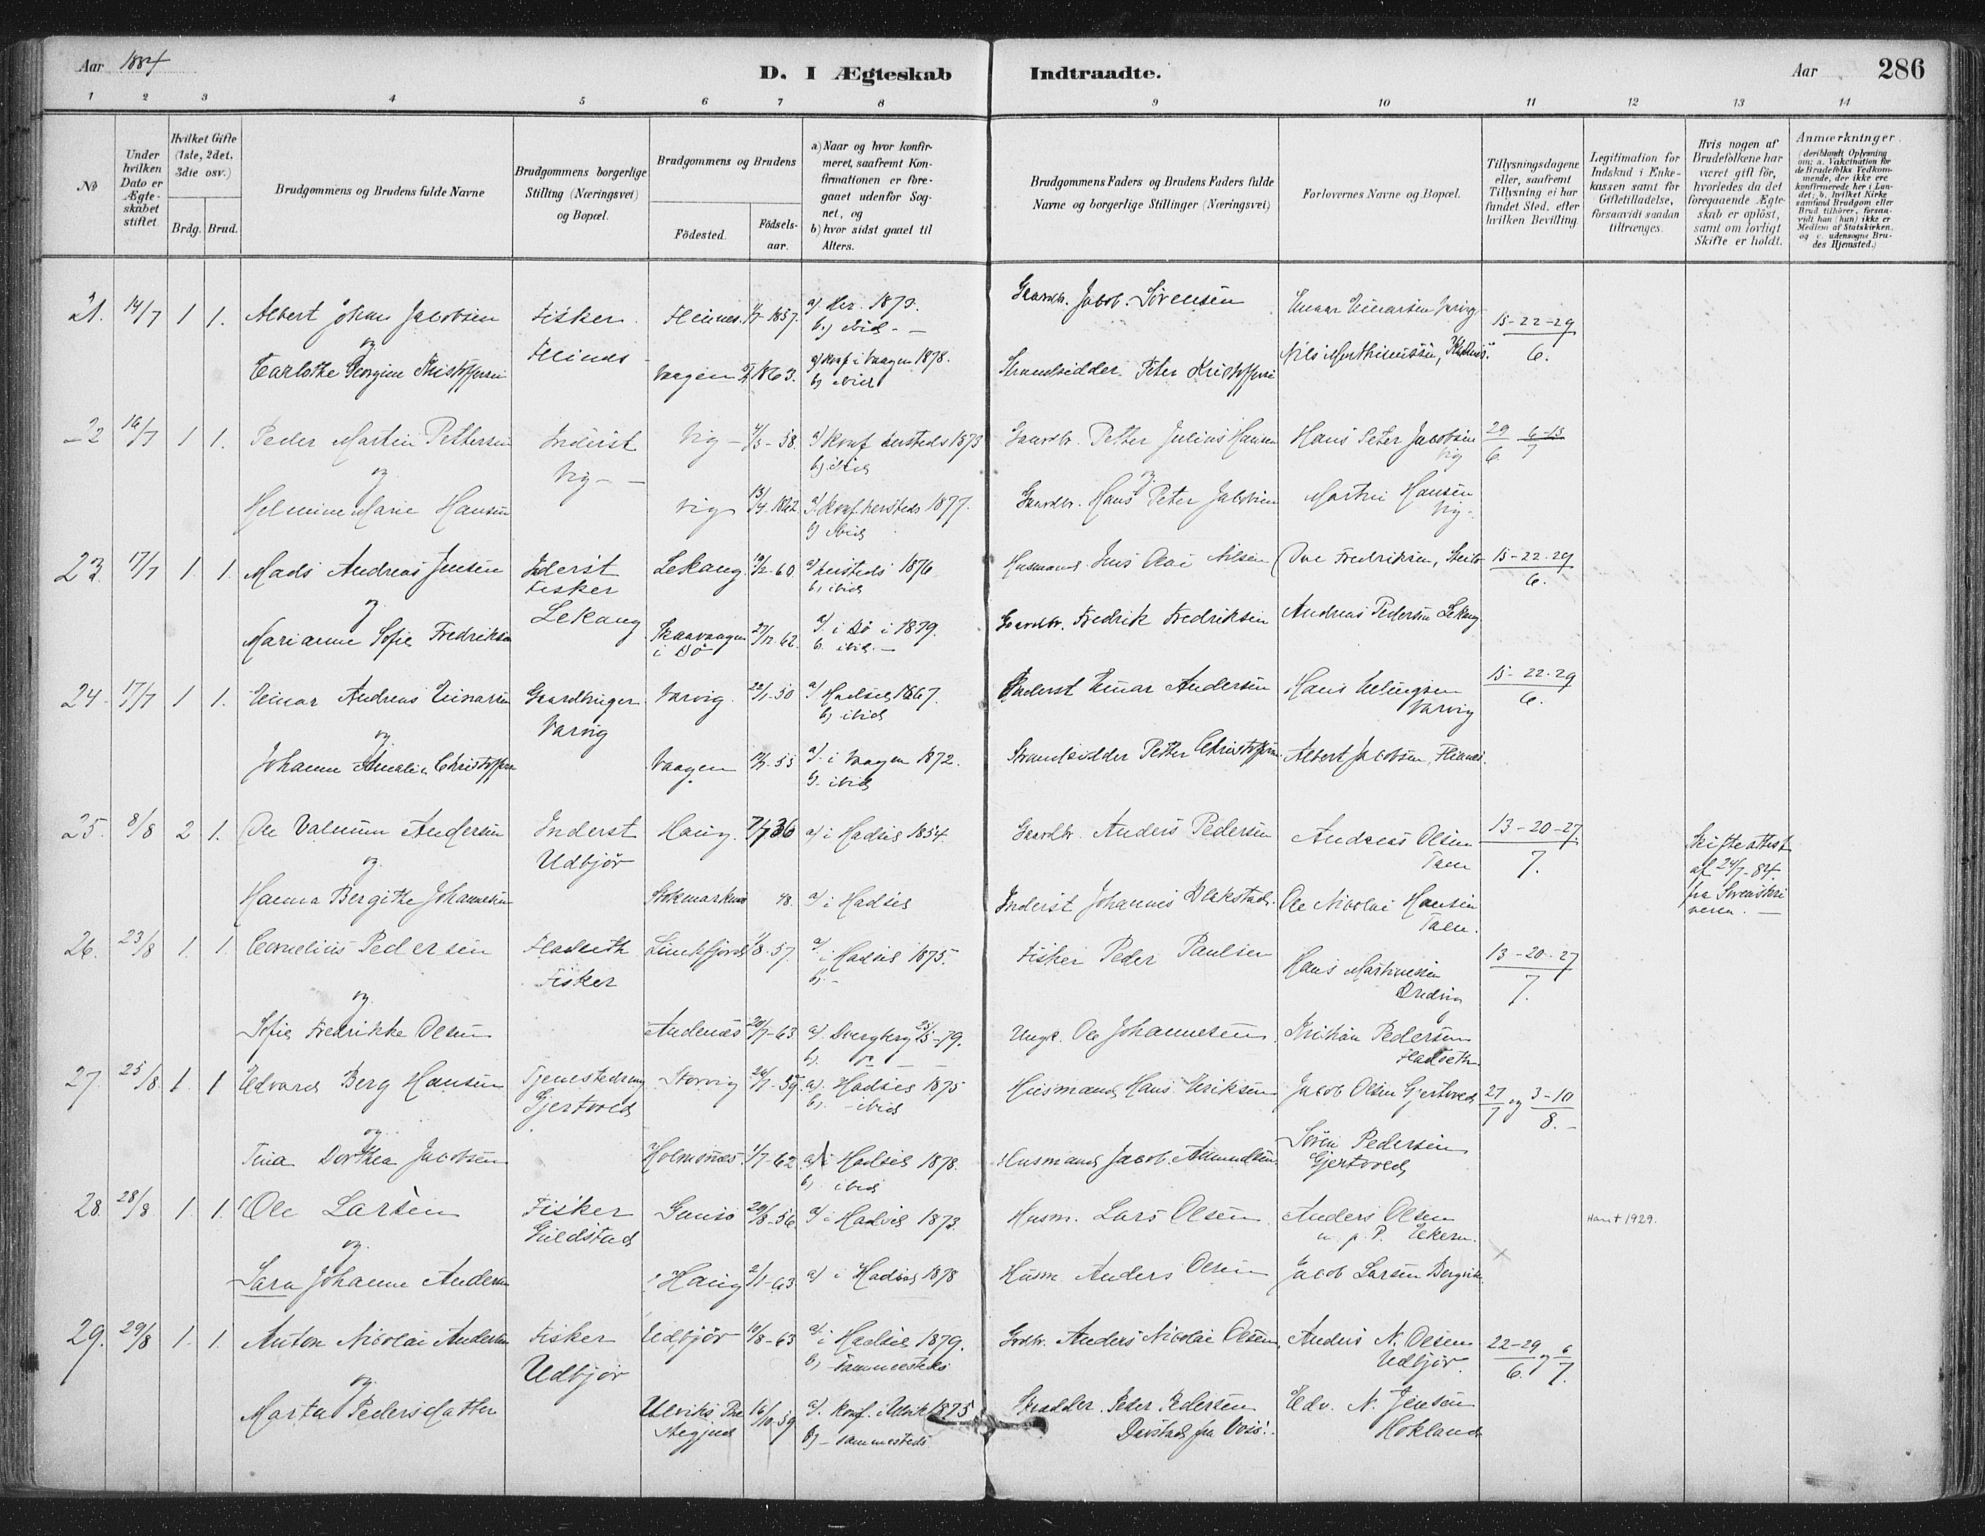 Aar 1884
D. I Ægteskab Indtraadte.
Aar 286
1 2 3 4 5 6 7 8 9 10 11 12 13 14
No
Under hvilken Dato er Ægteskabet stiftet
Hvilket Gifte (1ste, 2det, 3die osv.)
Brdg. Brud.
Brudgommens og Brudens fulde Navne
Brudgommens borgerlige Stilling (Næringsvei) og Bopæl.
Brudgommens og Brudens
Födested.
Födsels-aar.
a) Naar og hvor konfirmeret, saafremt Konfirmationen er foregaaet udenfor Sognet, og
b) hvor sidst gaaet til Alters.
Brudgommens Faders og Brudens Faders fulde Navne og borgerlige Stillinger (Næringsvei)
Forlovernes Navne og Bopæl.
Tillysningsdagene eller, saafremt Tillysning ei har fundet Sted, efter hvilken Bevilling
Legitimation for Indskud i Enkekassen samt for Giftetilladelse, forsaavidt saadan tiltrænges.
Hvis nogen af Brudefolkene har været gift før, hvorledes da det foregaaende Ægteskab er opløst, samt om lovligt Skifte er holdt.
Anmærkninger.
(deriblandt Oplysning om: a. Vakcination for de Brudefolks Vedkommende, der ikke ere konfirmerede her i Landet; b. hvilket Kirkesamfund Brudgom eller Brud tilhører, forsaavidt han (hun) ikke er Medlem af Statskirken, og c. udensogns Brudes Hjemsted.)
21. 14/7 1 1. Albert Johan Jacobsen Fisker Gaardbr. Jacob Sørensen Einar Einarsen 15-22-29
og Vaagen 1863. a) konf i Vaagen 1878. 6.
Georgine b) ibid Strandsidder Peter Nils
22 16/7 1 1. Peder Martin Pettersen Inderst Vig 58. a) konf hersteds 1873 Gaardbr. Petter Julius Hansen Hans Peter Jacobsen 29 6-13
og Vig b) ibid Vig 6. 7
Helmine Marie Hansen Vig 13/4 1862 a) konf hersteds 1877. Gaardbr. Hans Peter Jacobsen Martin Hansen
b) ibid Vig
23. 17/7 1. 1. Mads Andreas Jensen Inderst Lekang 60 a) hersteds 1876. Husmand Jens Nilsen Ove Fredriksen, 15-22-29
og Fisker b) ibid 6.
Marianne Sofie Fredriksen Lekang i Bø 27/12 62. a) i Bø i 1879. Gaardbr. Fredrik Fredriksen Andreas Pedersen Lekang
b. ibid.
24. 17/7 1 1. Einar Andreas Einarsen Gaardbruger Varvig 22/1-50 a) Hadsel 1867. Inderst Einar Andersen Hans 15-22-29
og Varvig b) ibid Varvig 6.
Johanne Amalie Christoffersen Vaagen 55 a). i Vaagen 1872. Strandsidder Petter Christoffersen Albert Jacobsen,
b. ibid
25. 8/8 2 1. Ole Andersen Inderst Haug 7/7 36 a) i Hadsel 1854. Gaardbr. Anders Pedersen Andreas Olsen 13-20-27 Skifteattest
og Udbjør Taen 7. af 24/7-84.
Hanna Bergithe Johannesen Stokmarknæs 48. a) i Hadsel Inderst Johannes Ole Nicolai Hansen fra
Taen.
26. 23/8 1. 1. Cornelius Pedersen Fladseth 1/8-57. a) i Hadsel 1875. Fisker Peder Paulsen Hans 13-20-27
og Fisker b) 7.
Sofie Fredrikke Olsen Andenæs 20/7-63 a) Dverberg 25/5-79. Ungk. Ole Johannesen Kristian Pedersen
Fladseth
27. 25/8 1. 1 Edvard Berg Hansen Tjenestedreng Storvig 26/7-59. a). Hadsel 1875 Husmand Hans Eriksen Jacob Olsen Gjertoved 27 og 3-10
og Gjertoved b). ibid 7 8.
Tina Dorthea Jacobsen Holmsnæs 1/7-62. a) i Hadsel 1878. Husmand Jacob Amundsen Søren Pedersen
b). ibid Gjertoved
28. 28/8 1. 1. Ole Larsen Fisker 29/8-56 a) i Hadsel 1873. Husm. Lars Olsen Anders Olsen Han † 1929.
og Guldstad p. P.
Sara Johanne Andersen Haug 2/1-63 a) i Hadsel 1878 Husm. Anders Olsen Jacob Larsen
29. 29/8 1. 1. Anton Nicolai Andersen Fisker Udbjør 19/8-63 a) i Hadsel 1879. Grdbr. Anders Nicolai Olsen Anders N. Olsen 22-29 og 6
og Udbjør b) sammesteds Udbjør. 6. 7.
Marta Pedersdatter Ulviks 16/10-59 a). konf. i Ulvik 1875 Peder Pedersen Edv. N. Jensen
b) sammesteds fra Voss! Hokland